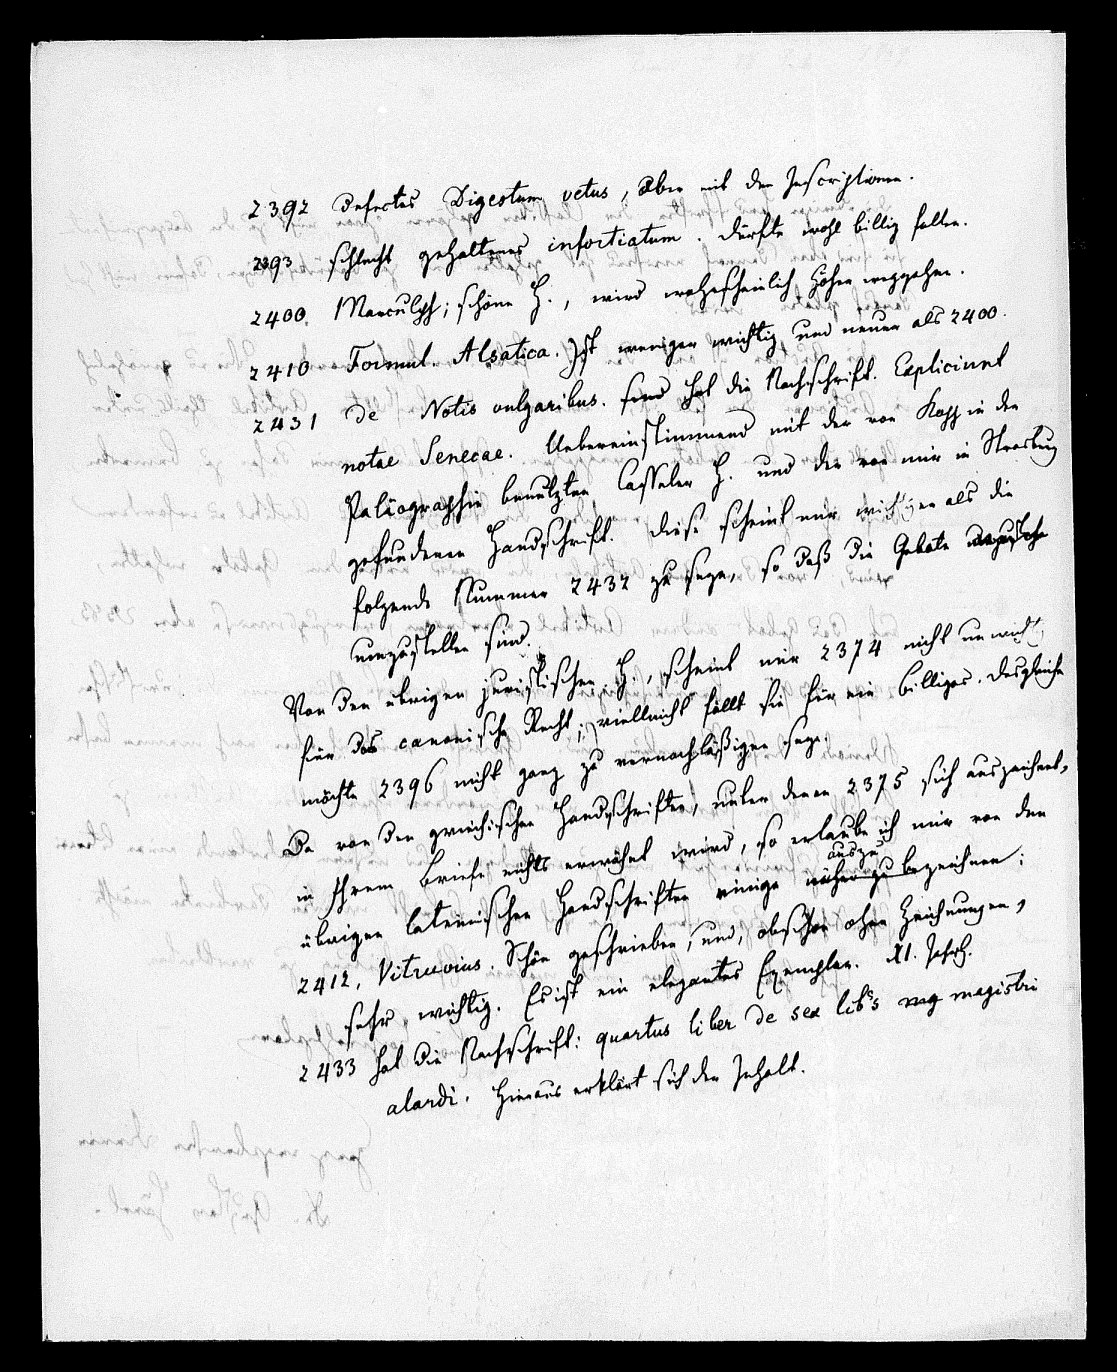 2392 Defectes Digestum vetus, aber mit den Inscriptionen.
2393 schlecht gehaltenes infortiatum. Dürfte wohl billig fallen.
2400. Marculph; schöne H., wird wahrscheinlich höher weggehen.
2410 Formul. Alsatica. Ist weniger wichtig und neuer als 2400.
2431 De Notis vulgaribus. sind hat die Nachschrift. Expliciunt
notae Senecae. Uebereinstimmend mit der von Kopp in der
Paläographie benutzten Casseler H. und der von mir in Strasburg
gefundenen Handschrift. Diese scheint mir wichtiger als die
folgende Nummer 2432 zu seyn, so daß die Gebote
umzustellen sind.
Von den übrigen juristischen H., scheint mir 2374 nicht unwicht.
für das canonische Recht; vielleicht fällt sie für ein billiges. Desgleichen
möchte 2396 nicht ganz zu vernachläßigen seyn.
Da von den griechischen Handschriften, unter denen 2375 sich auszeichnet,
in Ihrem Briefe nichts erwähnt wird, so erlaube ich mir von den
übrigen lateinischen Handschriften einige näher zu auszubezeichnen:
2412. Vitruvius. Schön geschrieben, und, obschon ohne Zeichnungen,
sehr wichtig. Es ist ein elegantes Exemplar. XI. Jahrh.
2433 hat die Nachschrift: quartus liber de sex lib^s mg magistri
alardi. Hieraus erklärt sich der Inhalt.